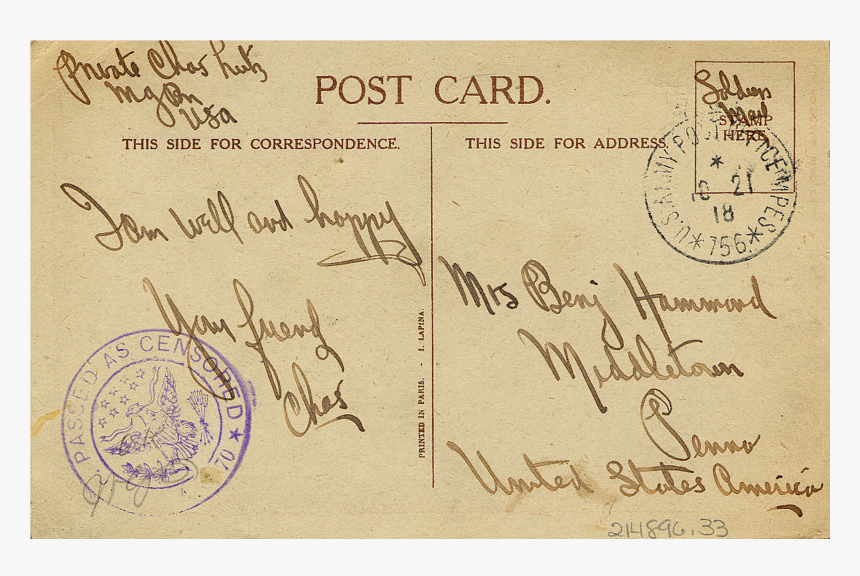 Private Chas Lutz
M G Bn
USA
POST CARD.
Soldiers
Mail
STAMP
HERE
THIS SIDE FOR CORRESPONDENCE.
THIS SIDE FOR ADDRESS
U.S. ARMY POST OFFICE MPES
* 756 *
10 21
18
I am well and happy
Your friend
Chas
Mrs Benj Hammond
Middletown
Penna
United States America
PRINTED IN PARIS. - I. LAPINA.
PASSED AS CENSORED ★
70
214896.33